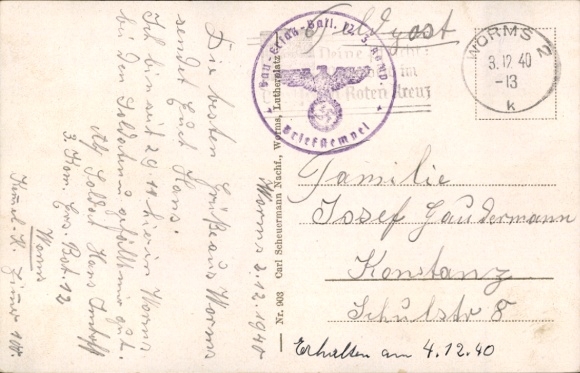 Feldpost
Bau-Ersatz-Batl. 12, 3. Komp.
Briefstempel
Deine
im
Roten Kreuz
WORMS 2
3.12.40
-13
k
Worms 2.12.1940
Die besten Grüße aus Worms
sendet Euch Hans.
Ich bin seit 29.11 hier in Worms
bei den Soldaten gefällt mir gut.
Abs. Soldat Hans
3. Kom. Ers. Bat. 12
Worms
Zimer
Nr. 903 Carl Scheuermann Nachf., Worms, Lutherplatz
Familie
Josef Gaudermann
Konstanz
Schulstr 8
Erhalten am 4.12.40